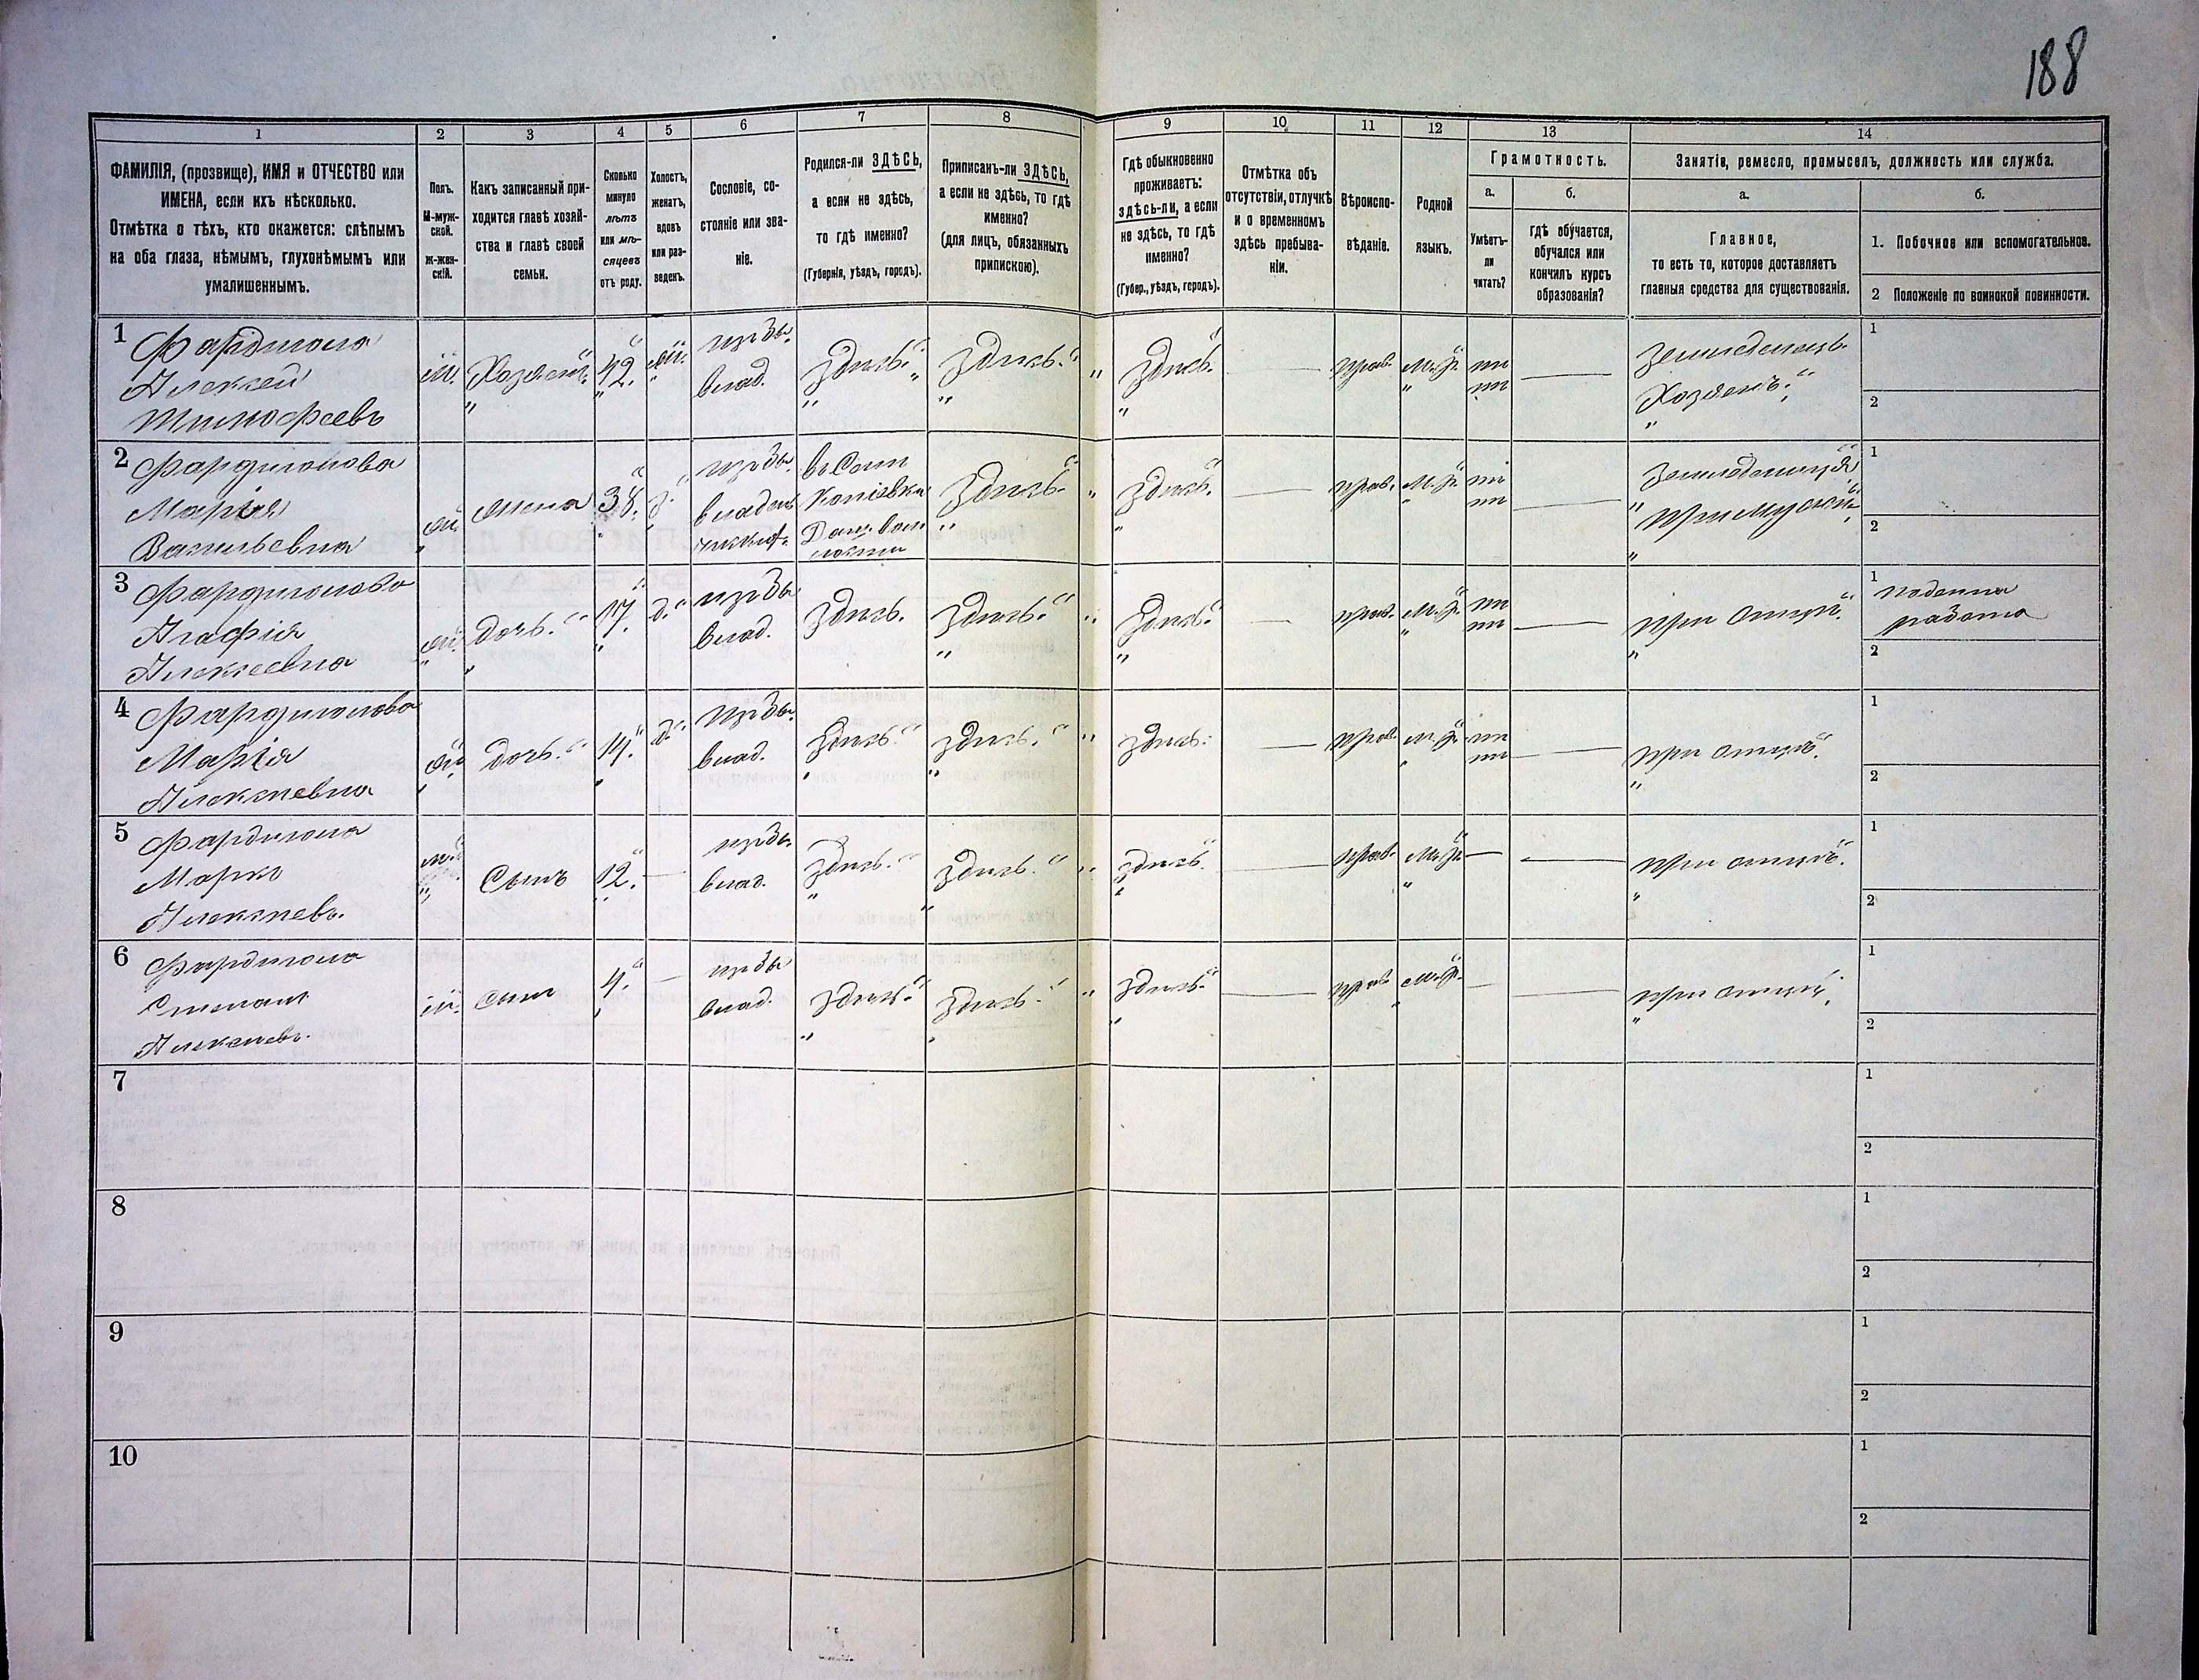 188
1
2
3
4
5
6
7
8
9
10
11
12
13
14
ФАМИЛІЯ, (прозвище), ИМЯ и ОТЧЕСТВО или
ИМЕНА, если ихъ нѣсколько.
Отмѣтка о тѣхъ, кто окажется: слѣпымъ
на оба глаза, нѣмымъ, глухонѣмымъ или
умалишеннымъ.
Полъ.
М-муж-
ской.
Ж-жен-
скій.
Какъ записанный при-
ходится главѣ хозяй-
ства и главѣ своей
семьи.
Сколько
минуло
лѣтъ
или мѣ-
сяцевъ
отъ роду.
Холостъ,
женатъ,
вдовъ
или раз-
веденъ.
Сословіе, со-
стояніе или зва-
ніе.
Родился-ли ЗДѢСЬ,
а если не здѣсь,
то гдѣ именно?
(Губернія, уѣздъ, городъ).
Приписанъ-ли ЗДѢСЬ,
а если не здѣсь, то гдѣ
именно?
(для лицъ, обязанныхъ
припискою).
Гдѣ обыкновенно
проживаетъ:
здѣсь-ли, а если
не здѣсь, то гдѣ
именно?
(Губер., уѣздъ, городъ).
Отмѣтка объ
отсутствіи, отлучкѣ
и о временномъ
здѣсь пребыва-
ніи.
Вѣроиспо-
вѣданіе.
Родной
языкъ.
Грамотность.
а.
Умѣетъ-
ли
читать?
б.
гдѣ обучается,
обучался или
кончилъ курсъ
образованія?
Занятіе, ремесло, промыселъ, должность или служба.
а.
Главное,
то есть то, которое доставляетъ
главныя средства для существованія.
б.
1. Побочное или вспомогательное.
2 Положеніе по воинской повинности.
1
Фардигола
Алексей
Тимофеевъ
м.
Хозяинъ
42.
влад.
здѣсь
здѣсь
здѣсь
прав.
Мр.
Земледелецъ
Хозяинъ
1
2
2
Фардиголова
Марія
Васильевна
жена
38.
Копіевка
здѣсь
здѣсь
прав.
Мр.
1
2
3
Фардиголова
Агафія
Алексеевна
дочь.
17.
д.
влад.
здѣсь.
здѣсь.
здѣсь.
прав.
Мр.
при отцѣ
1 поденна
работа
2
4
Фардиголова
Марія
Алексѣевна
дочь.
14.
д.
влад.
здѣсь
здѣсь.
здѣсь.
прав.
Мр.
при отцѣ.
1
2
5
Фардигола
Марко
Алексѣевъ.
м.
Сынъ
12.
влад.
здѣсь.
здѣсь.
здѣсь
прав.
Мр.
при отцѣ.
1
2
6
Фардигола
Степанъ
Алексѣевъ.
м.
сынъ
4.
влад.
здѣсь.
здѣсь.
здѣсь.
прав
Мр.
при отцѣ.
1
2
7
1
2
8
1
2
9
1
2
10
1
2